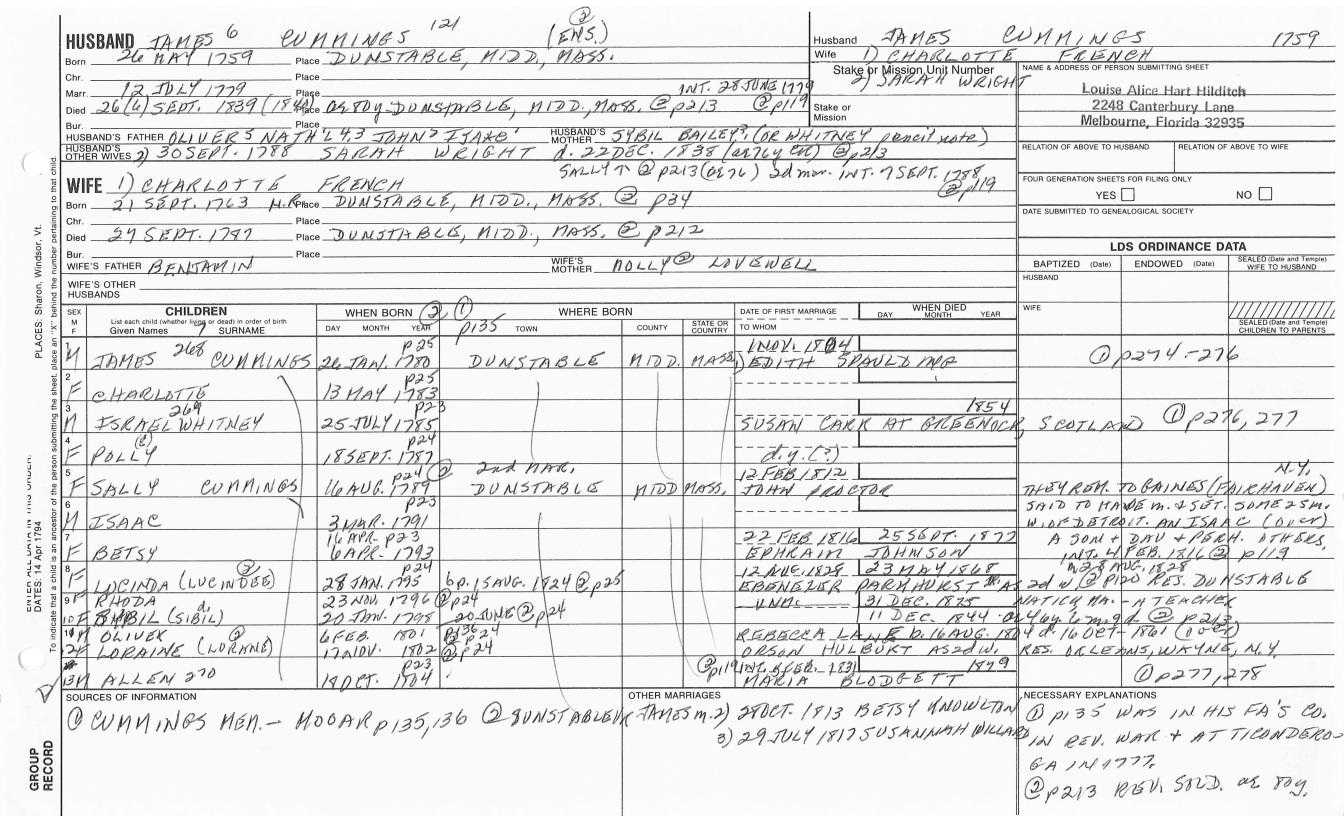 HUSBAND JAMES 6 CUMMINGS 121 (ENS.) ②
Born 26 MAY 1759 Place DUNSTABLE, MIDD, MASS.
Chr. Place
Marr. 12 JULY 1779 Place INT. 28 JUNE 1779
Died 26(6) SEPT. 1839 (1840) Place ae 80y - DUNSTABLE, MIDD, MASS. ② p213 ② p119
Bur. Place
HUSBAND'S FATHER OLIVER 5 NATH'L 4,3 JOHN 2 ISAAC 1 HUSBAND'S MOTHER SYBIL BAILEY? (OR WHITNEY pencil note)
HUSBAND'S OTHER WIVES 2) 30 SEPT. 1788 SARAH WRIGHT d. 22 DEC. 1838 (ae 76y) ② p213
SALLY ↑ ② p213 (ae 76) 2d mar. INT. 7 SEPT. 1788
② p119
WIFE 1) CHARLOTTE FRENCH
Born 21 SEPT. 1763 Place DUNSTABLE, MIDD., MASS. ② p34
Chr. Place
Died 27 SEPT. 1787 Place DUNSTABLE, MIDD, MASS. ② p212
Bur. Place
WIFE'S FATHER BENJAMIN WIFE'S MOTHER MOLLY ② LOVEWELL
WIFE'S OTHER HUSBANDS
Husband JAMES CUMMINGS 1759
Wife 1) CHARLOTTE FRENCH
Stake or Mission Unit Number
2) SARAH WRIGHT
Stake or Mission
NAME & ADDRESS OF PERSON SUBMITTING SHEET
Louise Alice Hart Hilditch
2248 Canterbury Lane
Melbourne, Florida 32935
RELATION OF ABOVE TO HUSBAND RELATION OF ABOVE TO WIFE
FOUR GENERATION SHEETS FOR FILING ONLY
YES NO
DATE SUBMITTED TO GENEALOGICAL SOCIETY
LDS ORDINANCE DATA
BAPTIZED (Date) ENDOWED (Date) SEALED (Date and Temple) WIFE TO HUSBAND
HUSBAND
WIFE
SEALED (Date and Temple) CHILDREN TO PARENTS
SEX M F CHILDREN List each child (whether living or dead) in order of birth Given Names 7 SURNAME
WHEN BORN ② ① DAY MONTH YEAR p135
WHERE BORN TOWN COUNTY STATE OR COUNTRY
DATE OF FIRST MARRIAGE TO WHOM
WHEN DIED DAY MONTH YEAR
1 M JAMES 268 CUMMINGS 26 JAN. 1780 p25 DUNSTABLE MIDD. MASS. 1 NOV. 1804 1) EDITH SPAULDING ① p274-276
2 F CHARLOTTE 13 MAY 1783 p25
3 M ISRAEL WHITNEY 269 25 JULY 1785 p23 1854 SUSAN CARR AT GREENOCK, SCOTLAND ① p276, 277
4 F POLLY 18 SEPT. 1787 p24 d.y.(?)
5 F SALLY CUMMINGS 16 AUG. 1789 p24 ② 2nd MAR. DUNSTABLE MIDD MASS. 12 FEB 1812 JOHN PROCTOR N.Y. THEY REM. TO GAINES (FAIRHAVEN)
6 M ISAAC 3 MAR. 1791 p23 SAID TO HAVE m. & SET. SOME 25 m. W. OF DETROIT. AN ISAAC (over)
7 F BETSY 16 APR. p23 6 APR. 1793 22 FEB 1816 25 SEPT. 1877 EPHRAIM JOHNSON A SON + DAU + PERH. OTHERS, INT. 4 FEB. 1816 ② p119
8 F LUCINDA (LUCINDEE) ② 28 JAN. 1795 p24 bp. 15 AUG. 1824 ② p25 12 AUG. 1828 23 MAY 1868 EBENEZER PARKHURST AS 2d w ② p120 RES. DUNSTABLE m 28 AUG. 1828
9 F RHODA 23 NOV. 1796 ② p24 UNM. 31 DEC. 1875 NATICK MA. - A TEACHER
10 F SYBIL (SIBIL) d. 20 JAN. 1798 20 JUNE ② p24 11 DEC. 1844 ② p213
11 M OLIVER 6 FEB. 1801 p136 ② p24 REBECCA LANE b. 16 AUG. 1804 d. 16 OCT. 1861 (over)
12 F LORAINE (LORANE) ② 17 NOV. 1802 ② p24 ORSON HULBURT AS 2d w. RES. ORLEANS, WAYNE, N.Y.
13 M ALLEN 270 18 OCT. 1804 p23 ② p119 INT. 8 FEB. 1831 1879 MARIA BLODGETT ① p277, 278
SOURCES OF INFORMATION
① CUMMINGS MEM. - MOOAR p135, 136 ② DUNSTABLE VR
OTHER MARRIAGES
JAMES m. 2) 28 OCT. 1813 BETSY KNOWLTON
3) 29 JULY 1817 SUSANNAH WILLARD
NECESSARY EXPLANATIONS
① p135 WAS IN HIS FA'S CO. IN REV. WAR + AT TICONDEROGA IN 1777.
② p213 REV. SOLD. ae 80y.
PLACES: Sharon, Windsor, Vt.
DATES: 14 Apr 1794
To indicate that a child is an ancestor of the person submitting the sheet, place an "X" behind the number pertaining to that child.
GROUP RECORD